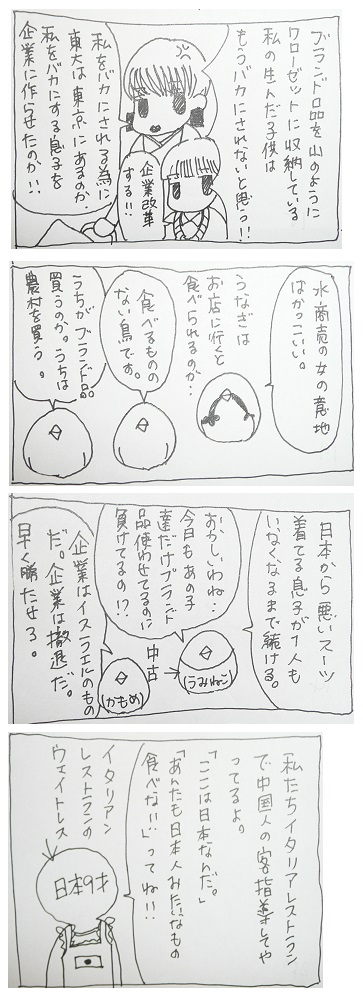 ブランド品を山のように
クローゼットに収納している
私の生んだ子供は
もうバカにされないと思う!!
企業改革
する!!
私をバカにされる為に
東大は東京にあるのか。
私をバカにする息子を
企業に作らせたのか!!
水商売の女の意地
はかっこいい。
うなぎは
お店に行くと
食べられるのか…
食べるものの
ない鳥です。
うちがブランド品
買うのか。うちは
農村を買う。
日本から悪いスーツ
着てる息子が1人も
いなくなるまで続ける。
おかしいわね…
今日もあの子
達だけブランド
品使わせてるのに
負けてるの!?
中古→
(うみねこ)
(かもめ)
企業はイスラエルのもの
だ。企業は撤退だ。
早く勝たせろ。
「私たちイタリアレストラン
で中国人の客指差してや
ってるよ。
「ここは日本なんだ。」
「あんたも日本人みたいなもの
食べない!」ってね!!
イタリアン
レストランの
ウェイトレス
日本9才